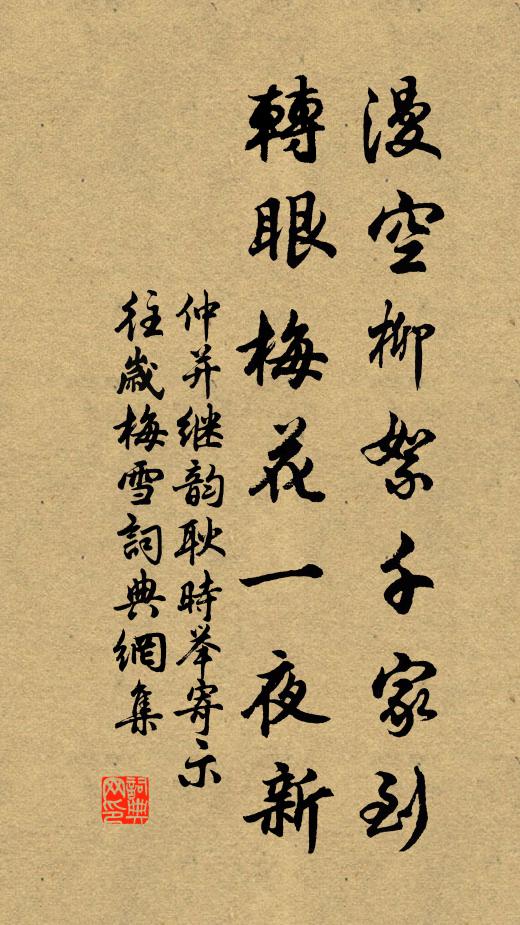 漫空柳絮千家到
轉眼梅花一夜新
仲并继韵耿時举寄示
往歲梅雪詞典網集
詞典网印